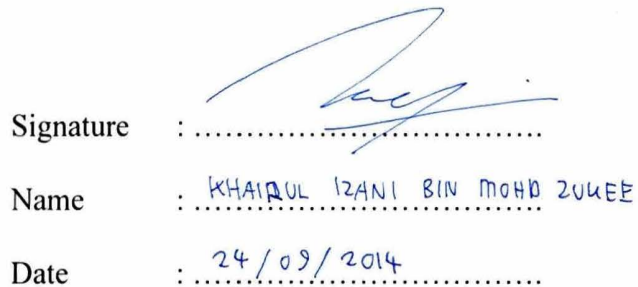 Signature : ....................................
Name : KHAIRUL IZANI BIN MOHD ZUKEE
Date : 24/09/2014